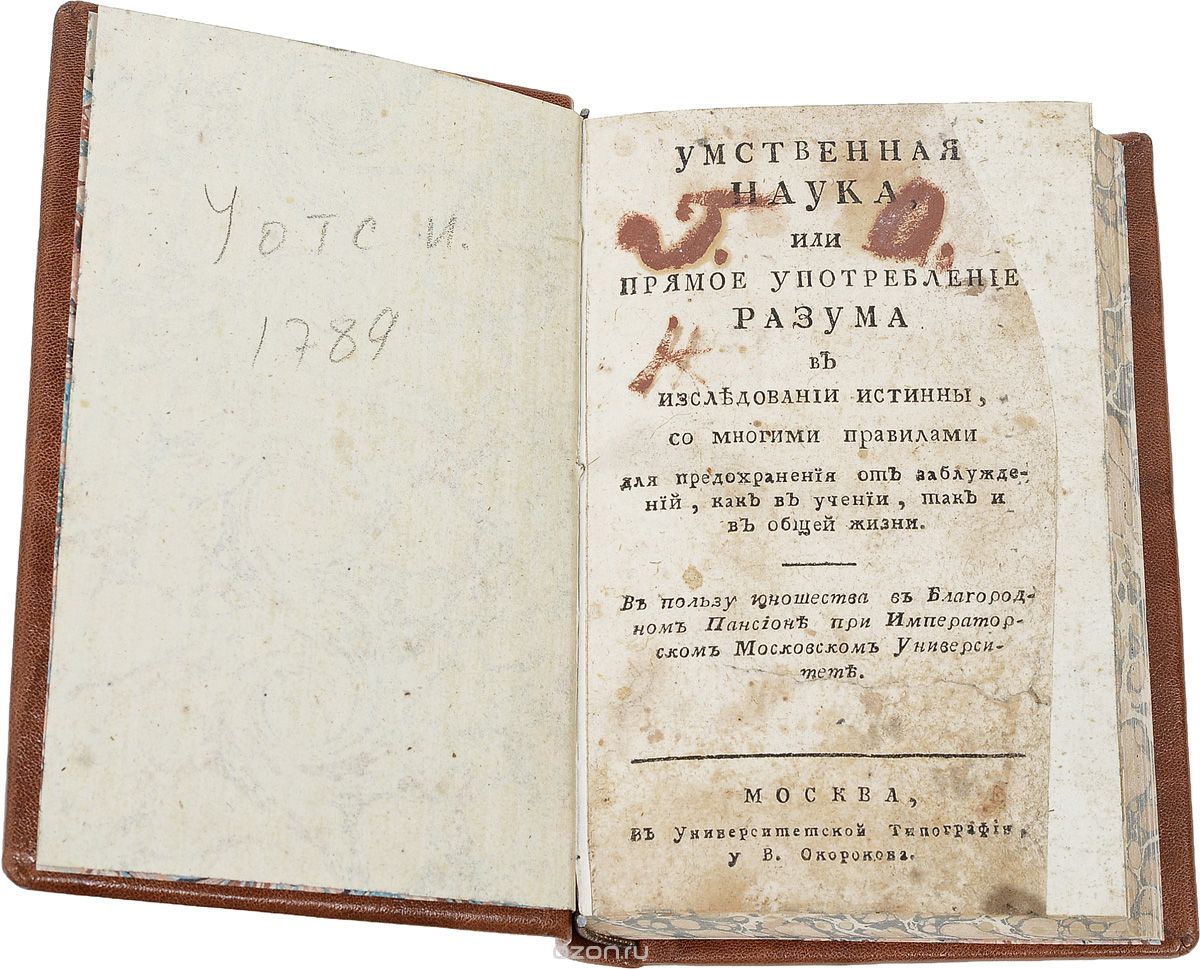 Уотс И.
1789
УМСТВЕННАЯ
НАУКА,
ИЛИ
ПРЯМОЕ УПОТРЕБЛЕНІЕ
РАЗУМА
ВЪ
ИЗСЛѢДОВАНІИ ИСТИННЫ,
СО МНОГИМИ ПРАВИЛАМИ
для предохраненїя отъ заблужде-
нїй, какъ въ ученїи, такъ и
въ общей жизни.
Въ пользу юношества въ Благород-
номъ Пансїонѣ при Император-
скомъ Московскомъ Универси-
тетѣ.
МОСКВА,
Въ Университетской Типографїи,
у В. Окорокова.
ozon.ru